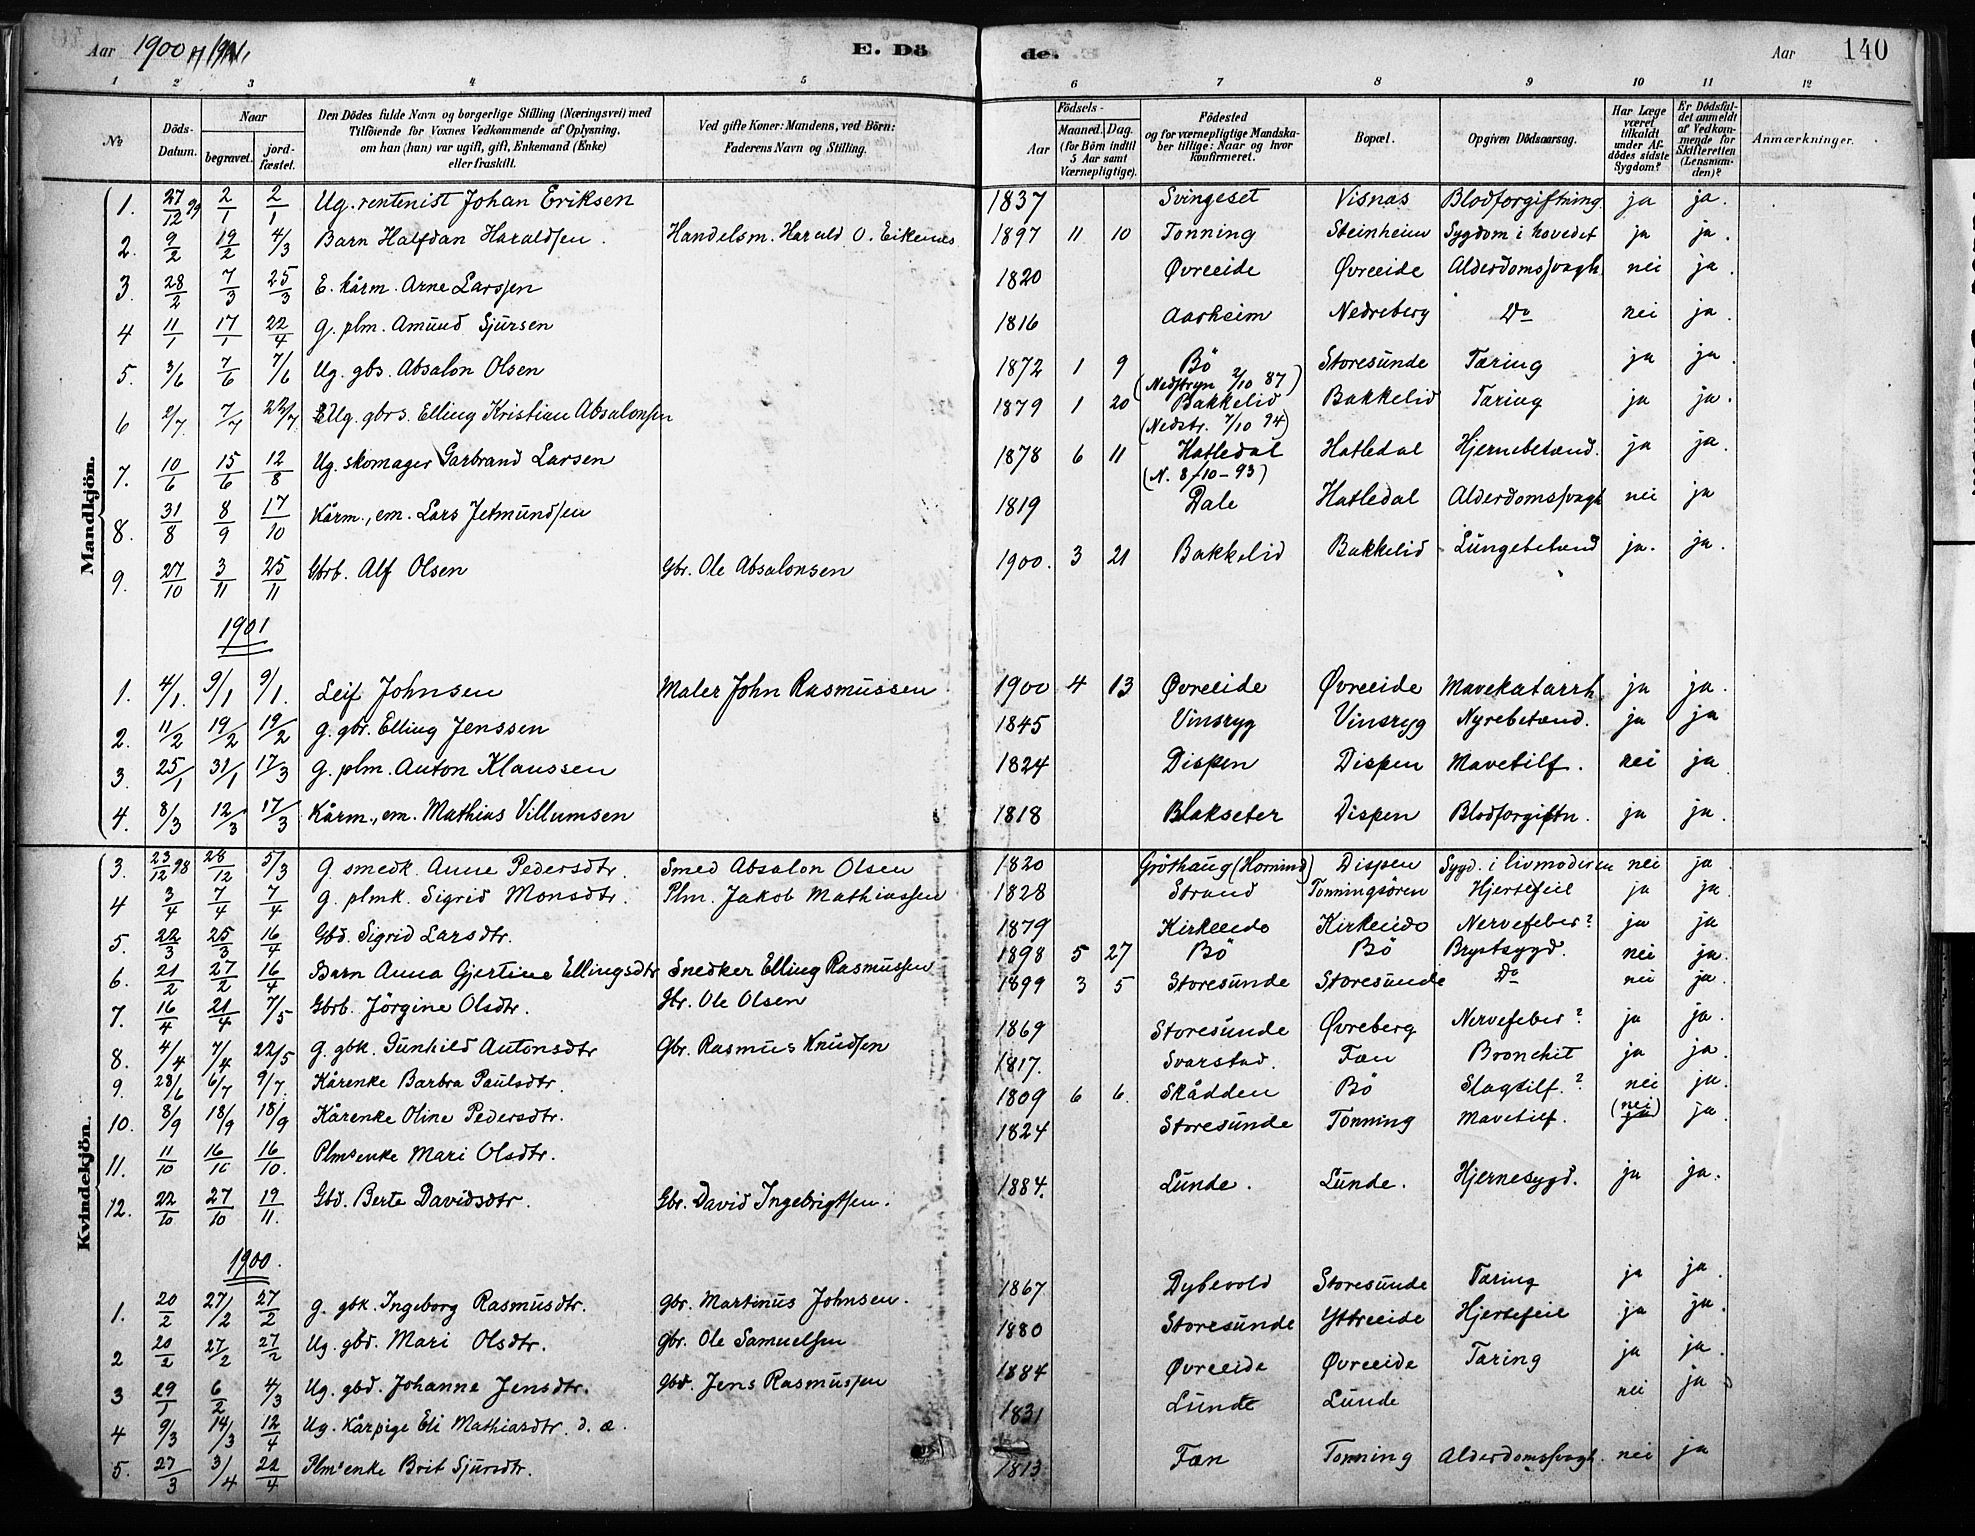 Aar 1900 E. Dö
de. Aar 140
1 2 3 4 5 6 7 8 9 10 11 12
№ Döds-Datum. Naar begravet. jordfæstet. Den Dödes fulde Navn og borgerlige Stilling (Næringsvei) med Tilföiende for Voxnes Vedkommende af Oplysning, om han (hun) var ugift, gift, Enkemand (Enke) eller fraskilt. Ved gifte Koner: Mandens, ved Börn: Faderens Navn og Stilling. Födsels- Aar Maaned. Dag. (for Börn indtil 5 Aar samt Værnepligtige). Födested og for værnepligtige Mandskaber tillige: Naar og hvor konfirmeret. Bopæl. Opgiven Dödsaarsag. Har Læge været tilkaldt under Afdödes sidste Sygdom? Er Dödsfaldet anmeldt af Vedkommende for Skifteretten (Lensmanden)? Anmærkninger.
Mandkjön.
1. 27/12 99 2/1 2/1 Ug. rentenist Johan Eriksen 1837 Svingeset Visnæs Blodforgiftning ja ja.
2. 9/2 19/2 4/3 Barn Halfdan Haraldsen. Handelsm. Harald O. Eikenes 1897 11 10 Tonning Steinheim Sygdom i hovedet ja ja.
3. 28/2 7/3 25/3 E. kårm. Arne Larssen 1820 Øvreeide Øvreeide Alderdomssvagh. nei ja.
4 11/1 17/1 22/4 G. plm. Amund Sjursen 1816 Aarheim Nedreberg Do nei ja.
5. 3/6 7/6 7/6 Ug. gbs. Absalon Olsen 1872 1 9 Bö (Nedstryn 2/10 87) Storesunde Tæring ja ja.
6 2/7 7/7 22/7 Ug. gbrs. Elling Kristian Absalonsen 1879 1 20 Bakkelid (Nedstr. 7/10 94) Bakkelid Tæring ja ja.
7. 10/6 15/6 12/8 Ug. skomager Garbrand Larsen 1878 6 11 Hatledal (N. 8/10-93) Hatledal Hjernebetænd. ja ja.
8. 31/8 8/9 17/10 Kårm., em. Lars Jetmundsen 1819 Dale Hatledal Alderdomssvagh nei ja
9. 27/10 3/11 25/11 Gbrb. Alf Olsen Gbr. Ole Absalonsen 1900. 3 21 Bakkelid Bakkelid Lungebetænd ja. ja.
1901
1. 4/1. 9/1 9/1. Leif Johnsen Maler John Rasmussen 1900 4 13 Øvreeide Øvreeide Mavekatarrh ja ja.
2. 11/2 19/2 19/2 G. gbr. Elling Jenssen 1845 Vinsryg Vinsryg Nyrebetænd. ja ja
3. 25/1 31/1 17/3 G. plm. Anton Klaussen 1824 Dispen Dispen Mavetilf. nei ja
4. 8/3 12/3 17/3 Kårm., em. Mathias Villumsen 1818 Blakseter Dispen Blodforgiftn. ja ja.
Kvindekjön.
3. 23/12 98 28/12 5/3 G. smedk. Anne Pedersdtr. Smed Absalon Olsen 1820 Gröthaug (Hornind) Dispen Sygd. i livmoderen nei ja
4 3/4 7/4 7/4 G. plmk. Sigrid Monsdtr. Plm. Jakob Mathiassen 1828 Strand Tonningsören Hjertefeil ja ja
5. 22/3 25/3 16/4 Gbd. Sigrid Larsdtr. 1879 Kirkeeide Kirkeeide Nervefeber? ja ja
6. 21/2 27/2 16/4 Barn Anna Gjertine Ellingsdtr Snedker Elling Rasmussen 1898 5 27 Bö Bö Brystsygd. nei ja.
7. 16/4 21/4 7/5 Gbrb. Jörgine Olsdtr. Gbr. Ole Olsen 1899 3 5 Storesunde Storesunde Do nei ja.
8. 4/4 7/4 22/5 G. gbk. Gunhild Antonsdtr Gbr. Rasmus Knudsen 1869 Storesunde Øvreberg Nervefeber? ja ja.
9. 28/6 6/7 9/7. Kårenke Barbra Paulsdtr. 1817. Svarstad. Fæn Bronchit ja ja.
10. 8/9 18/9 18/9 Kårenke Oline Pedersdtr. 1809 6 6. Skådden Bö Slagtilf.? nei ja.
11. 11/10 16/10 16/10. Plmsenke Mari Olsdtr. 1824 Storesunde Tonning Mavetilf. (nei) ja ja.
12. 22/10 27/10 19/11. Gbd. Berte Davidsdtr. Gbr. David Ingebrigtsen. 1884. Lunde. Lunde. Hjernesygd. ja ja.
1900.
1. 20/2 27/2 27/2 G. gbk. Ingeborg Rasmusdtr. Gbr. Martinus Johnsen. 1867 Dybevold Storesunde Tæring ja ja.
2 20/2 27/2 27/2 Ug. gbd. Mari Olsdtr. Gbr. Ole Samuelsen 1880 Storesunde Yttreeide Hjertefeil ja ja.
3 29/1 6/2 4/3 Ug. gbd. Johanne Jensdtr. Gbd. Jens Rasmussen 1884 Øvreeide Øvreeide Tæring ja ja.
4 9/3 14/3 12/4 Ug. Kårpige Eli Mathiasdtr. d. æ. 1831 Lunde Lunde nei ja
5. 27/3 3/4 22/4 Plmsenke Brit Sjursdtr. 1813 Fæn Tonning Alderdomssvagh. nei ja